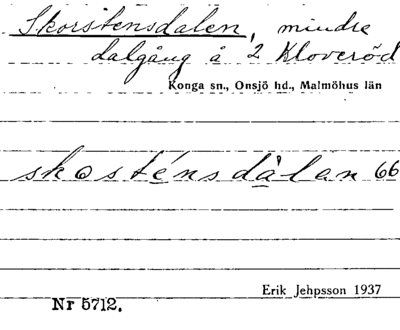 Skorstensdalen, mindre
dalgång å 2 Kloveröd
Konga sn., Onsjö hd., Malmöhus län
skosténsdàlan 66
Erik Jehpsson 1937
Nr 5712.